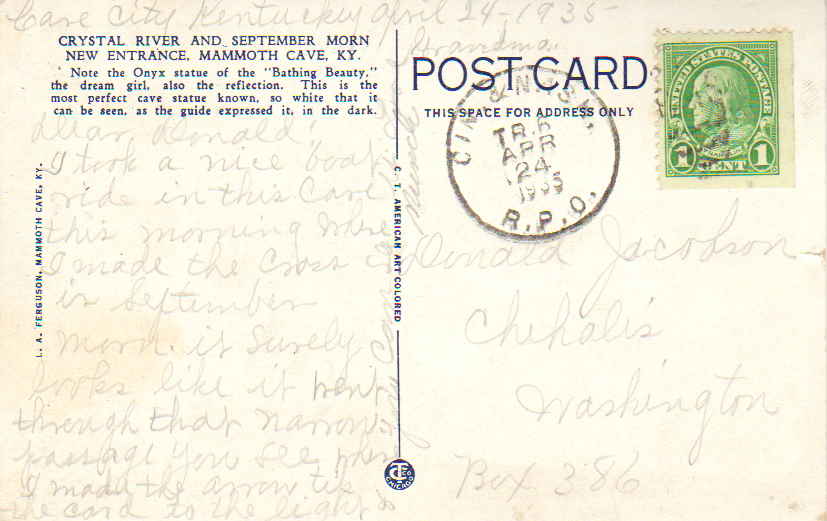 Cave City Kentucky April 24-1935-
CRYSTAL RIVER AND SEPTEMBER MORN
NEW ENTRANCE, MAMMOTH CAVE, KY.
Note the Onyx statue of the "Bathing Beauty,"
the dream girl, also the reflection. This is the
most perfect cave statue known, so white that it
can be seen, as the guide expressed it, in the dark.
Dear Donald,
I took a nice boat
ride in this Cave
this morning where
I made the cross
is September
Morn. it surely
looks like it went
through that narrow
passage you see where
I made the arrow
the card to the light
Grandma
L. A. FERGUSON, MAMMOTH CAVE, KY.
C. T. AMERICAN ART COLORED
C T CO
CHICAGO
POST CARD
THIS SPACE FOR ADDRESS ONLY
CIN. & NASH.
TR.6
APR
24
1935
R.P.O.
UNITED STATES POSTAGE
FRANKLIN
1 CENT 1
Donald Jacobson
Chehalis
Washington
Box 386